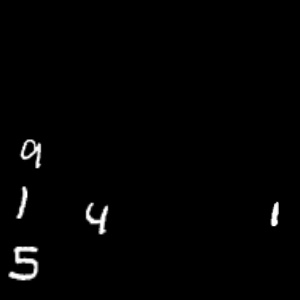 9
1 4 1
5